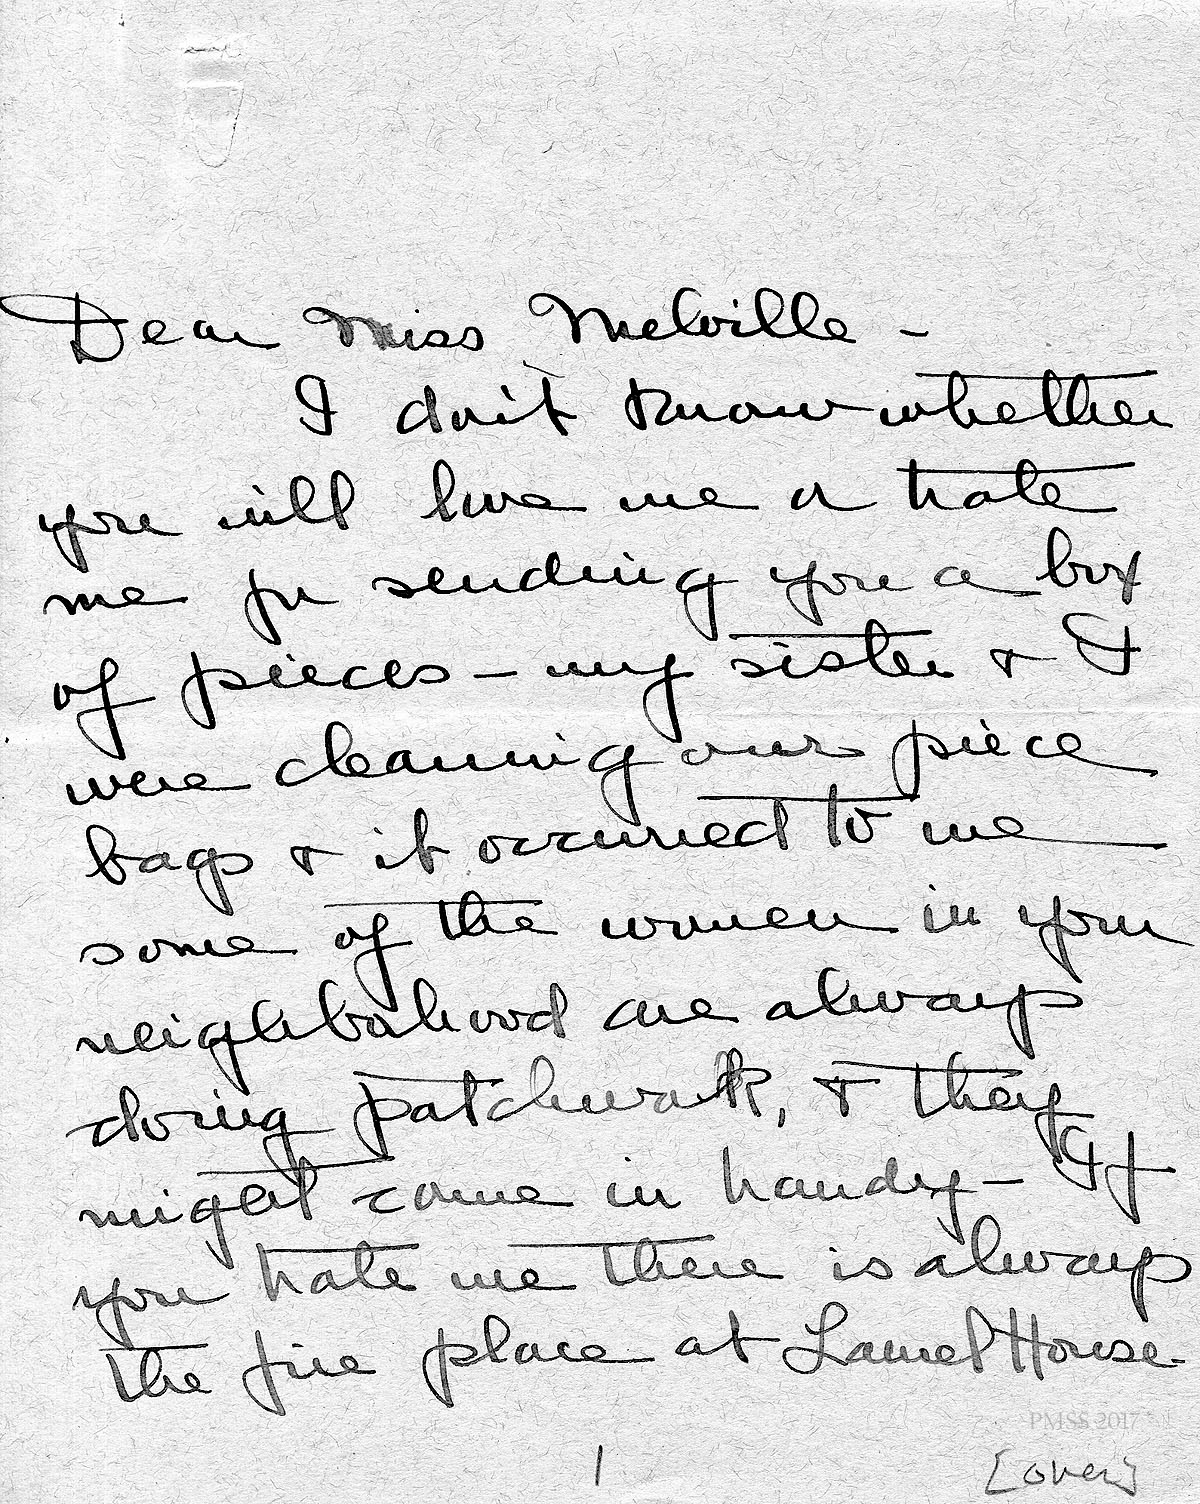 Dear Miss Melville -
I don't know whether
you will love me or hate
me for sending you a box
of pieces - my sister & I
were cleaning our piece
bags & it occurred to me
some of the women in your
neighborhood are always
doing patchwork, & they
might come in handy - If
you hate me there is always
the fire place at Laurel House.
PMSS 2017
1
[over]